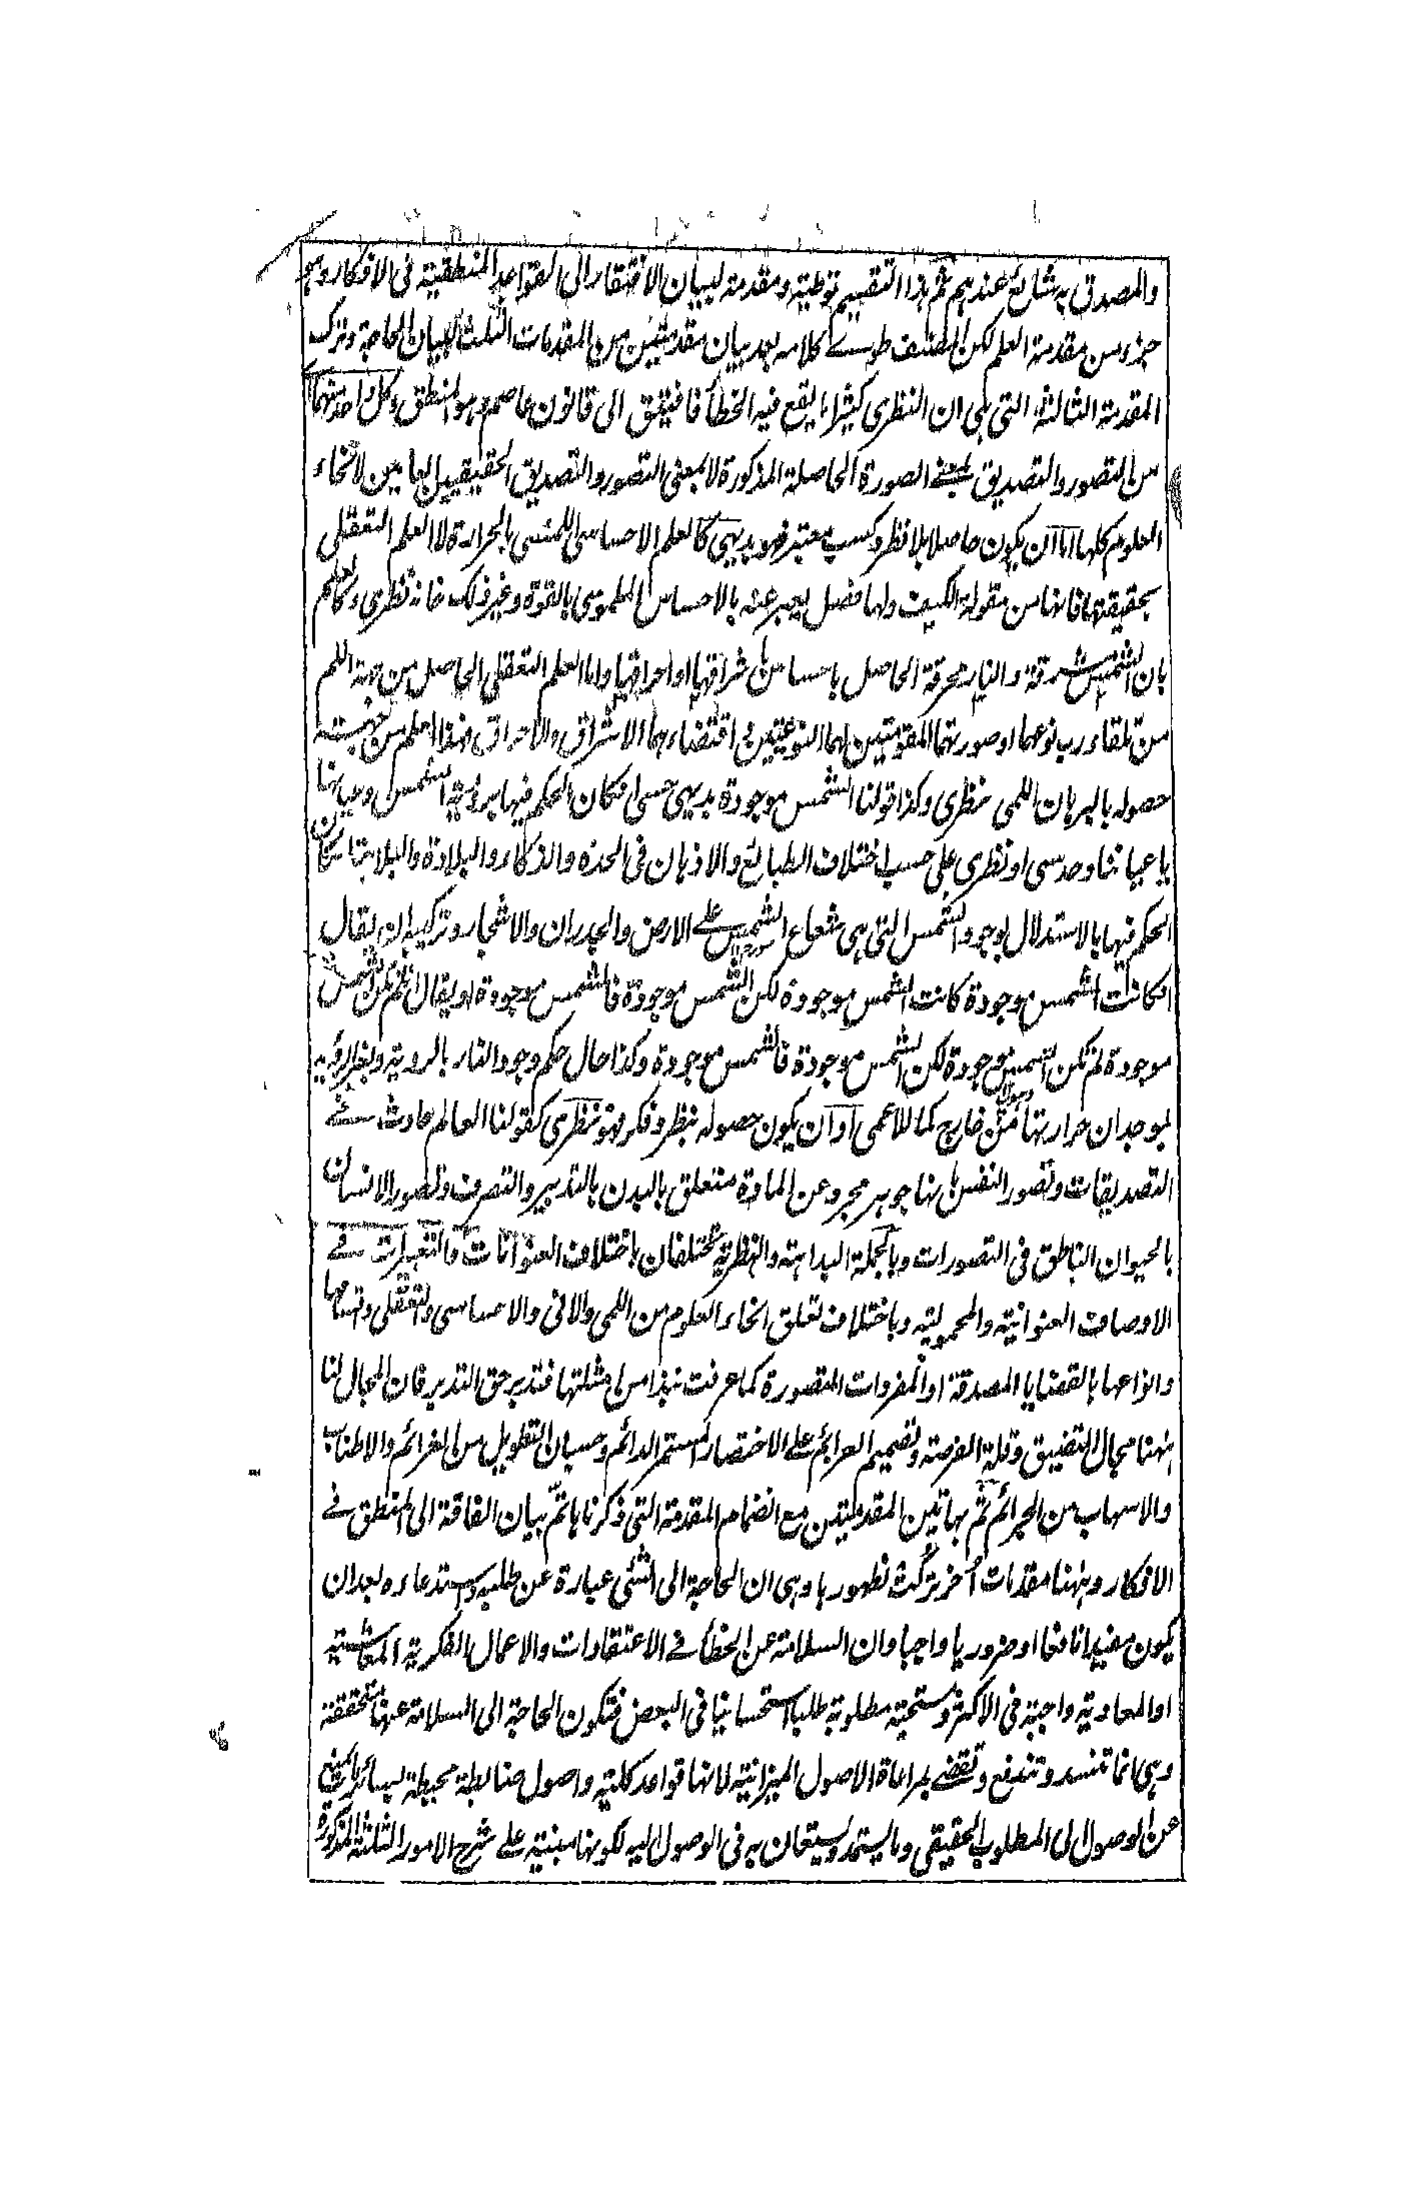 والمصدق به شائع عندهم ثم هذا التقسيم توطية ومقدمة لبيان الافتقار الى القواعد المنطقية فى الافكار وهو
جزء من مقدمة العلم لكن المصنف طوے كلامه بعد بيان مقدمتين من المقدمات الثلث لبيان الحاجة وترك
المقدمة الثالثة التى هى ان النظرى كثيرا ما يقع فيه الخطأ فافتيق الى قانون عاصم وهو المنطق وكل واحد منهما
من التصور والتصديق بمعنے الصورة الحاصلة المذكورة لا بمعنى التصور والتصديق الحقيقيين العامين لانحاء
العلوم كلها اما ان يكون حاصلا بلا نظر وكسب معتبر فهو بديهى كالعلم الاحساسى اللمسى بالحرارة لا العلم التعقلى
بحقيقتها فانها من مقولة الكيف ولها فصل يعبر عنه بالاحساس الملموسى بالقوة وغير ذلك فانه نظرى وكالعلم
بان الشمس مشرقة والنار محرقة الحاصل باحساس اشراقها او احراقها واما العلم التعقلى الحاصل من جهة اللم
من تلقاء رب نوعهما او صورتهما المقومتين لهما النوعيتين فى اقتضاءهما الاشراق والاحراق فهذا العلم من حيث
حصوله بالبرهان اللمى نظرى وكذا قولنا الشمس موجودة بديهى حسى ان كان الحكم فيها برؤية الشمس وعيانها
باعياننا وحدسى او نظرى على حسب اختلاف الطبائع والاذهان فى الحدة والذكاء والبلادة والبلاهة ان كان
الحكم فيها بالاستدلال بوجود الشمس التى هى شعاع الشمس على الارض والجدران والاشجار وتركيبه ان يقال
ان كانت الشمس موجودة كانت الشمس موجودة لكن الشمس موجودة فالشمس موجودة او يقال ان لم تكن الشمس
موجودة لم تكن الشمس موجودة لكن الشمس موجودة فالشمس موجودة وكذا حال حكم وجود النار بالروية وبغير الرؤية
بوجدان حرارتها من خارج كما للاعمى او ان يكون حصوله بنظر وفكر فهو نظرى كقولنا العالم حادث فے
التصديقات وتصور النفس بانها جوهر مجرد عن المادة متعلق بالبدن بالتدبير والتصرف وتصور الانسان
بالحيوان الناطق فى التصورات وبالجملة البداهة والنظرية تختلفان باختلاف العنوانات والتعبيرات فے
الاوصاف العنوانية والمحمولية وباختلاف تعلق انحاء العلوم من اللمى والانى والاحساسى والتعقلى واقسامها
وانواعها بالقضايا المصدقة او المفردات المتصورة كما عرفت نبذا من امثلتها فتدبر حق التدبر فان المجال لنا
ههنا مجال التضييق وقلة الفرصة وتصميم العزائم على الاختصار المستمر الدائم وحسبان التطويل من الغرائم والاطناب
والاسهاب من الجرائم ثم بهاتين المقدمتين مع انضمام المقدمة التى ذكرناها تم بيان الفاقة الى المنطق فے
الافكار وههنا مقدمات اُخر تركت لظهورها وهى ان الحاجة الى الشئ عبارة عن طلبه واستدعاءه بعد ان
يكون مفيدا نافعا او ضروريا واجبا وان السلامة عن الخطأ فے الاعتقادات والاعمال الفكرية المعاشية
او المعادية واجبة فى الاكثر ومستحبة مطلوبة طلبا استحسانيا فى البعض فتكون الحاجة الى السلامة عنها متحققة
وهى انما تنسد وتندفع وتقضے بمراعاة الاصول الميزانية لانها قواعد كلية واصول ضابطة محيطة بسائر ما يمنع
عن الوصول الى المطلوب الحقيقى وما يستمد ويستعان به فى الوصول اليه لكونها مبنية على شرح الامور الثلثة المذكورة